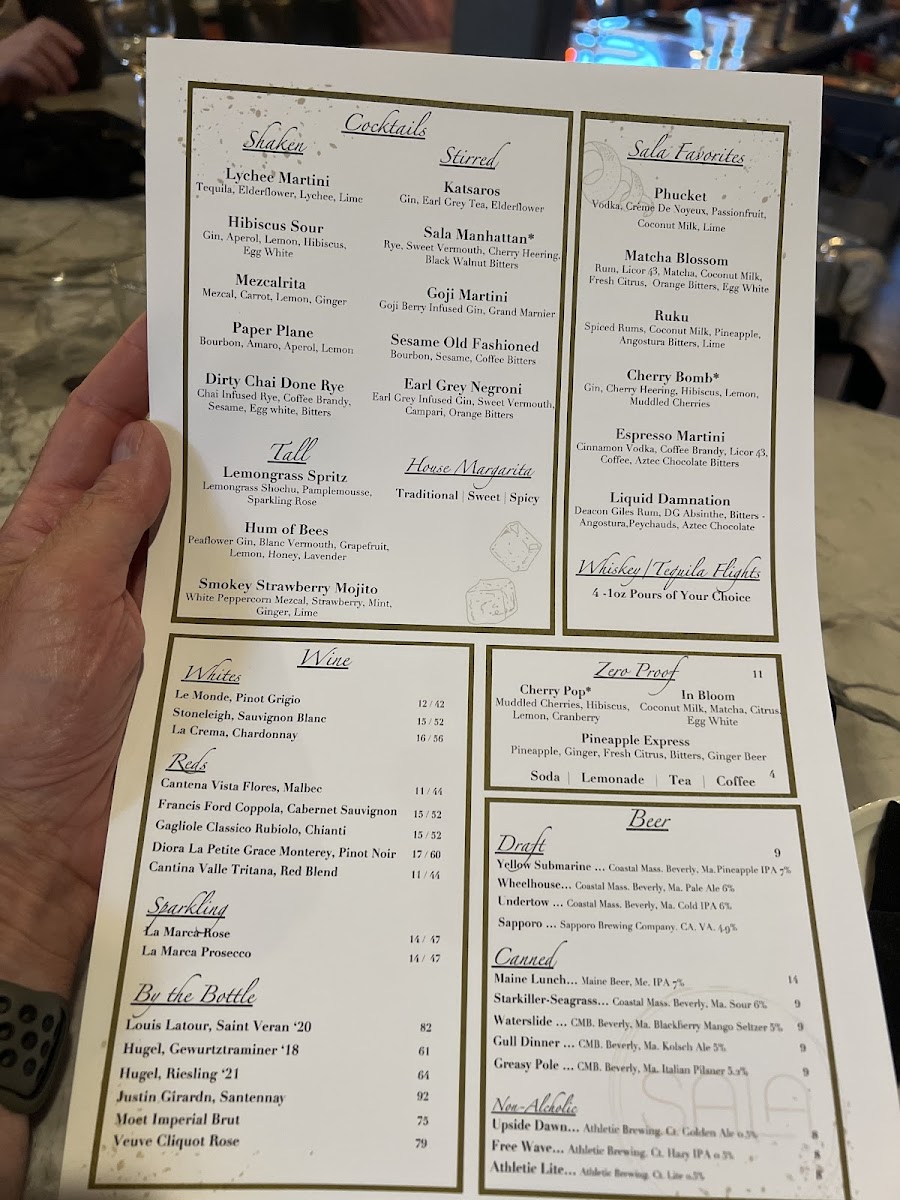 Cocktails
Shaken
Lychee Martini
Tequila, Elderflower, Lychee, Lime
Hibiscus Sour
Gin, Aperol, Lemon, Hibiscus,
Egg White
Mezcalrita
Mezcal, Carrot, Lemon, Ginger
Paper Plane
Bourbon, Amaro, Aperol, Lemon
Dirty Chai Done Rye
Chai Infused Rye, Coffee Brandy,
Sesame, Egg white, Bitters
Stirred
Katsaros
Gin, Earl Grey Tea, Elderflower
Sala Manhattan*
Rye, Sweet Vermouth, Cherry Heering,
Black Walnut Bitters
Goji Martini
Goji Berry Infused Gin, Grand Marnier
Sesame Old Fashioned
Bourbon, Sesame, Coffee Bitters
Earl Grey Negroni
Earl Grey Infused Gin, Sweet Vermouth,
Campari, Orange Bitters
Tall
Lemongrass Spritz
Lemongrass Shochu, Pamplemousse,
Sparkling Rose
Hum of Bees
Peaflower Gin, Blanc Vermouth, Grapefruit,
Lemon, Honey, Lavender
Smokey Strawberry Mojito
White Peppercorn Mezcal, Strawberry, Mint,
Ginger, Lime
House Margarita
Traditional | Sweet | Spicy
Sala Favorites
Phucket
Vodka, Créme De Noyeux, Passionfruit,
Coconut Milk, Lime
Matcha Blossom
Rum, Licor 43, Matcha, Coconut Milk,
Fresh Citrus, Orange Bitters, Egg White
Ruku
Spiced Rums, Coconut Milk, Pineapple,
Angostura Bitters, Lime
Cherry Bomb*
Gin, Cherry Heering, Hibiscus, Lemon,
Muddled Cherries
Espresso Martini
Cinnamon Vodka, Coffee Brandy, Licor 43,
Coffee, Aztec Chocolate Bitters
Liquid Damnation
Deacon Giles Rum, DG Absinthe, Bitters -
Angostura,Peychauds, Aztec Chocolate
Whiskey | Tequila Flights
4 -1oz Pours of Your Choice
Wine
Whites
Le Monde, Pinot Grigio 12 / 42
Stoneleigh, Sauvignon Blanc 15 / 52
La Crema, Chardonnay 16 / 56
Reds
Cantena Vista Flores, Malbec 11 / 44
Francis Ford Coppola, Cabernet Sauvignon 15 / 52
Gagliole Classico Rubiolo, Chianti 15 / 52
Diora La Petite Grace Monterey, Pinot Noir 17 / 60
Cantina Valle Tritana, Red Blend 11 / 44
Sparkling
La Marca Rose 14 / 47
La Marca Prosecco 14 / 47
By the Bottle
Louis Latour, Saint Veran ‘20 82
Hugel, Gewurtztraminer ‘18 61
Hugel, Riesling ‘21 64
Justin Girardn, Santennay 92
Moet Imperial Brut 75
Veuve Cliquot Rose 79
Zero Proof 11
Cherry Pop*
Muddled Cherries, Hibiscus,
Lemon, Cranberry
In Bloom
Coconut Milk, Matcha, Citrus,
Egg White
Pineapple Express
Pineapple, Ginger, Fresh Citrus, Bitters, Ginger Beer
Soda | Lemonade | Tea | Coffee 4
Beer
Draft 9
Yellow Submarine ... Coastal Mass. Beverly, Ma.Pineapple IPA 7%
Wheelhouse... Coastal Mass. Beverly, Ma. Pale Ale 6%
Undertow ... Coastal Mass. Beverly, Ma. Cold IPA 6%
Sapporo ... Sapporo Brewing Company. CA. VA. 4.9%
Canned
Maine Lunch... Maine Beer, Me. IPA 7% 14
Starkiller-Seagrass... Coastal Mass. Beverly, Ma. Sour 6% 9
Waterslide ... CMB. Beverly, Ma. Blackberry Mango Seltzer 5% 9
Gull Dinner ... CMB. Beverly, Ma. Kolsch Ale 5% 9
Greasy Pole ... CMB. Beverly, Ma. Italian Pilsner 5.2% 9
Non-Alcholic
Upside Dawn... Athletic Brewing. Ct. Golden Ale 0.5% 8
Free Wave... Athletic Brewing. Ct. Hazy IPA 0.5% 8
Athletic Lite... Athletic Brewing. Ct. Lite 0.5% 8
SALA